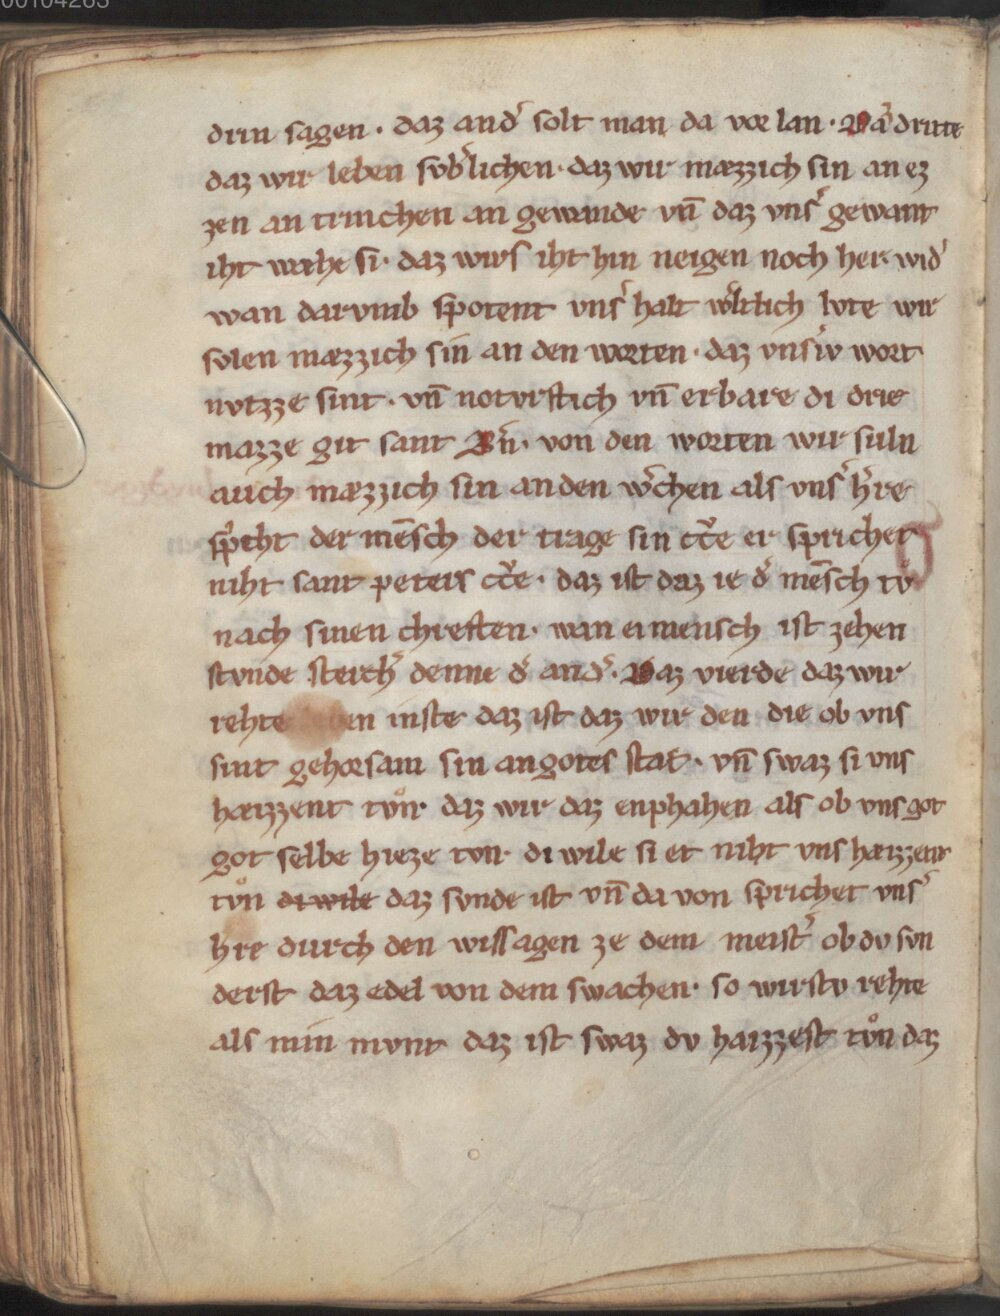 00104263
drin sagen · daz and͛ solt man da vor lan · Daz dritte
daz wir leben svb͛lichen · daz wir mæzzich sin an ez
zen an trinchen an gewande vn̄ daz vns͛ gewant
iht wæhe si · daz wirs iht hin neigen noch her wid͛
wan darvmb spotent vns͛ halt w͛ltlich lvte wir
solen mæzzich sin an den worten · daz vns͛iv wort
nvtzze sint · vn̄ notvrftich vn̄ erbare di drie
mazze git sant · von den worten wir suln
auch mæzzich sin an den w͛chen als vns͛ h͛re
sp͛iht der mēsch der trage sin cr͛ce er sprichet
niht sant peters cr͛ce · daz ist daz ie d͛ mēsch tv̊
nach sinen chreften · wan ei mensch ist zehen
stvnde sterch͛ denne d͛ and͛ · Daz vierde daz wir
rehte leben inste daz ist daz wir den die ob vns
sint gehorsam sin an gotes stat · vn̄ swaz si vns
hæizzent tv̊n · daz wir daz enphahen als ob vns got
got selbe hieze tvn · di wile si et niht vns haizzent
tv̊n di wile daz svnde ist vn̄ da von sprichet vns͛
h͛re durch den wissagen ze dem meist͛ ob dv svn
derst daz edel von dem swachen · so wirstv rehte
als min mvnt daz ist swaz dv haizzest tv̊n daz